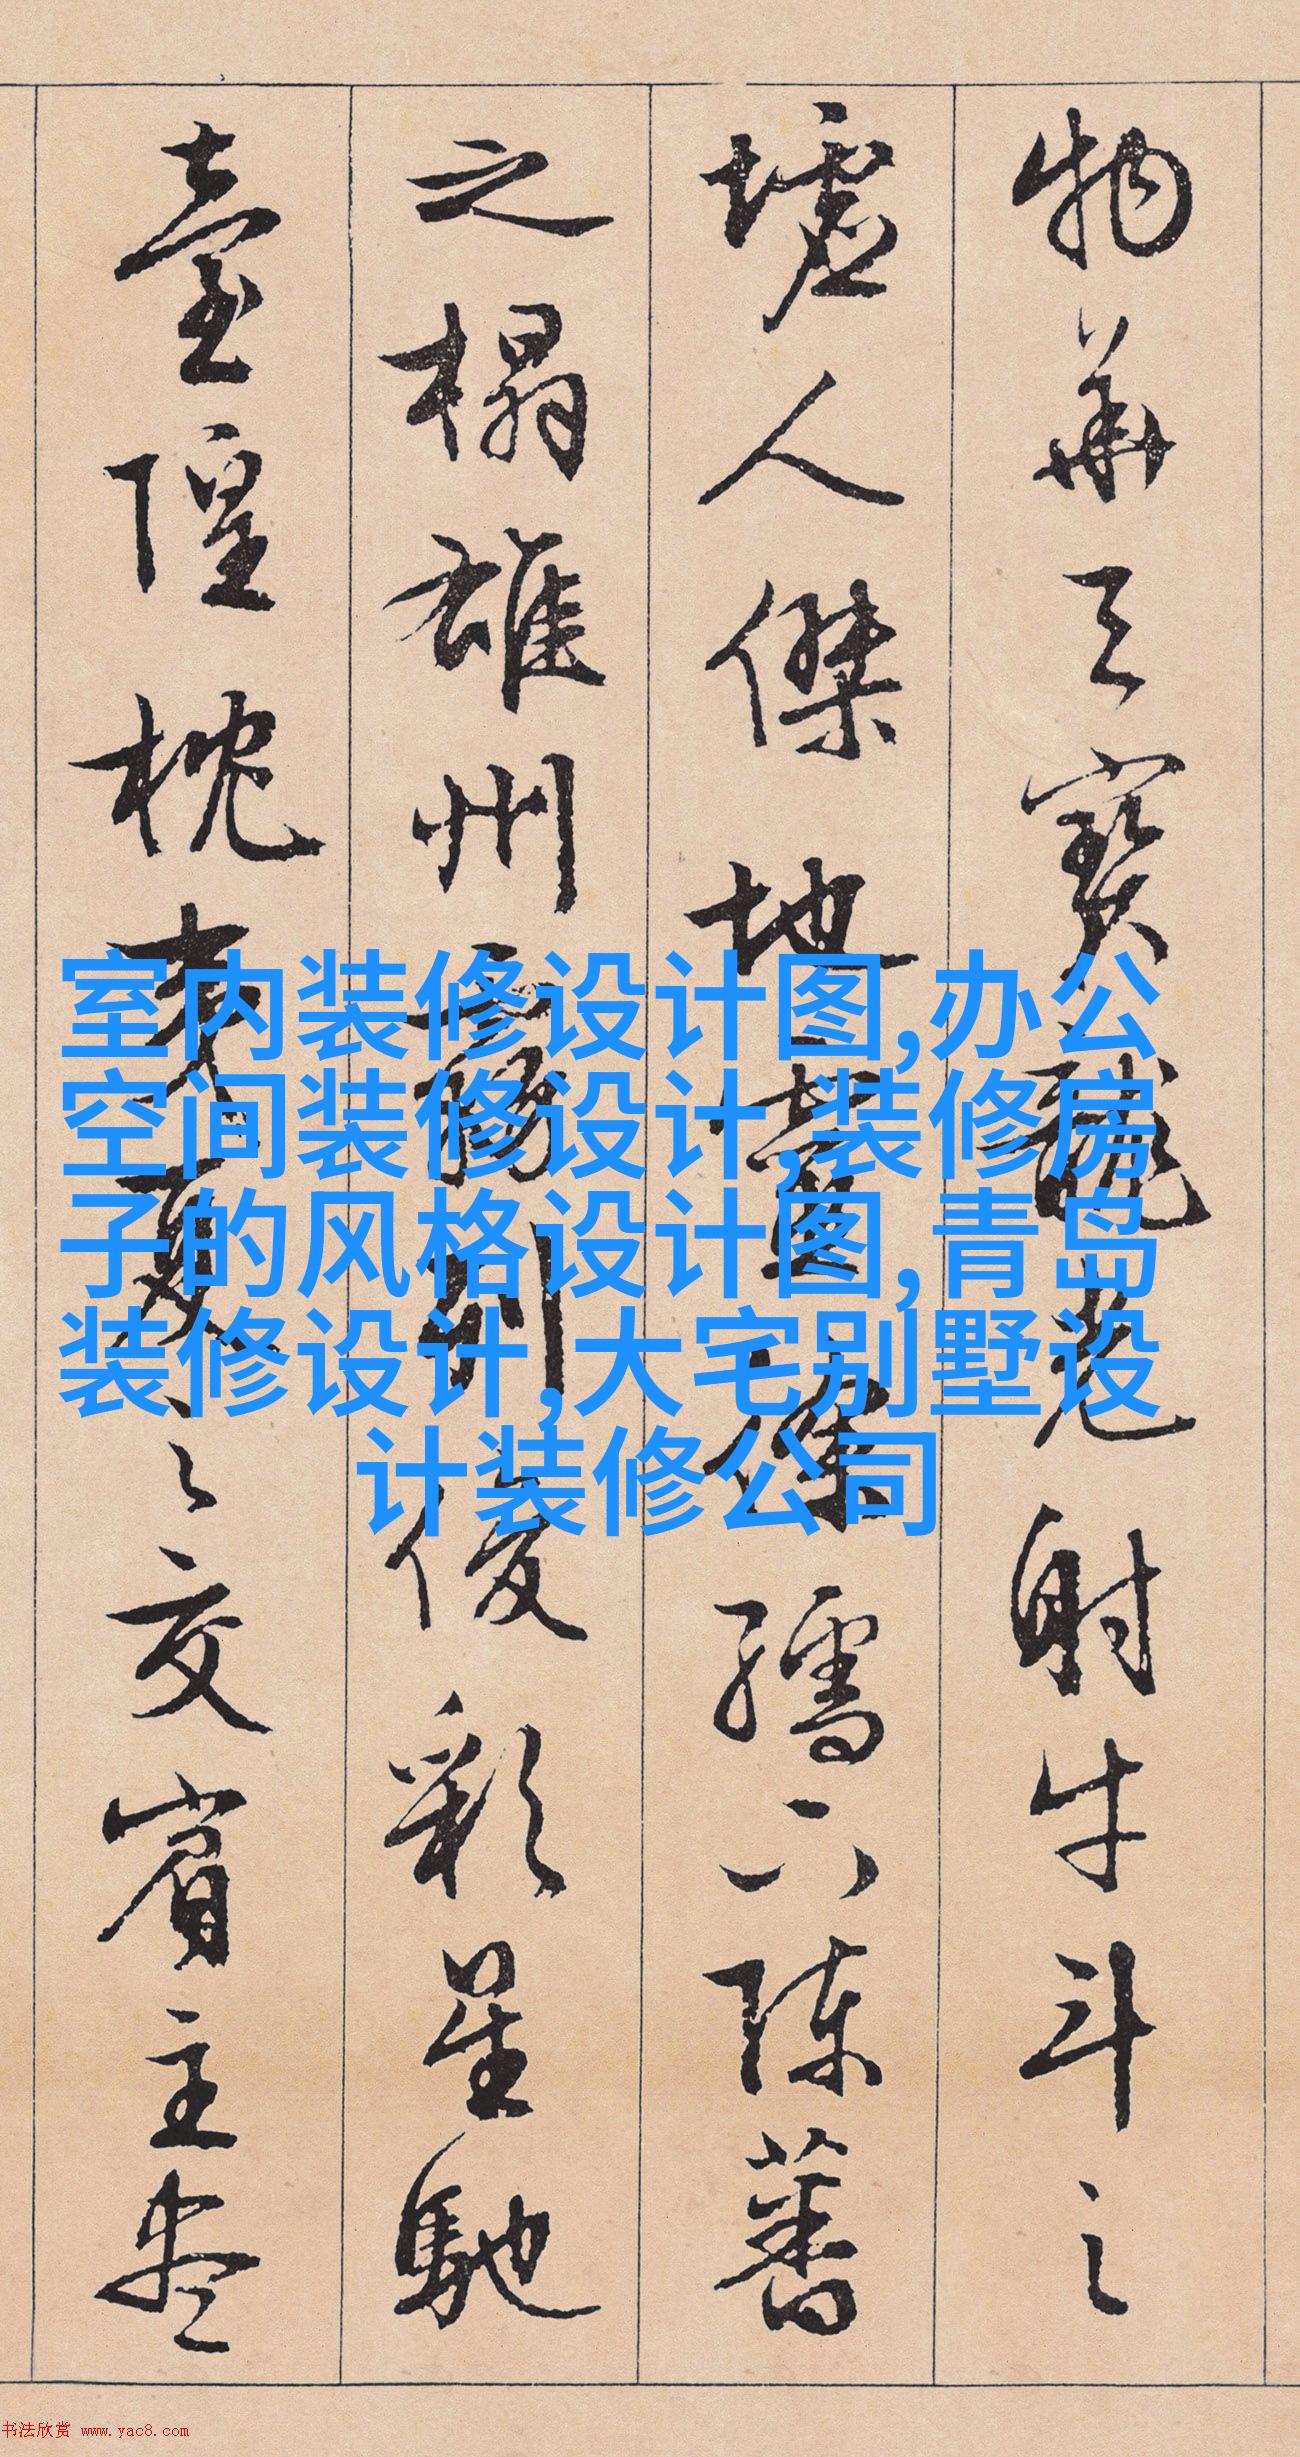 物華天寶龍光射牛斗之
墟人傑地靈徐孺下陳蕃
之榻雄州霧列俊彩星馳
臺隍枕夷夏之交賓主盡
室内装修设计图,办公
空间装修设计,装修房
子的风格设计图,青岛
装修设计,大宅别墅设
计装修公司
书法欣赏 www.yac8.com